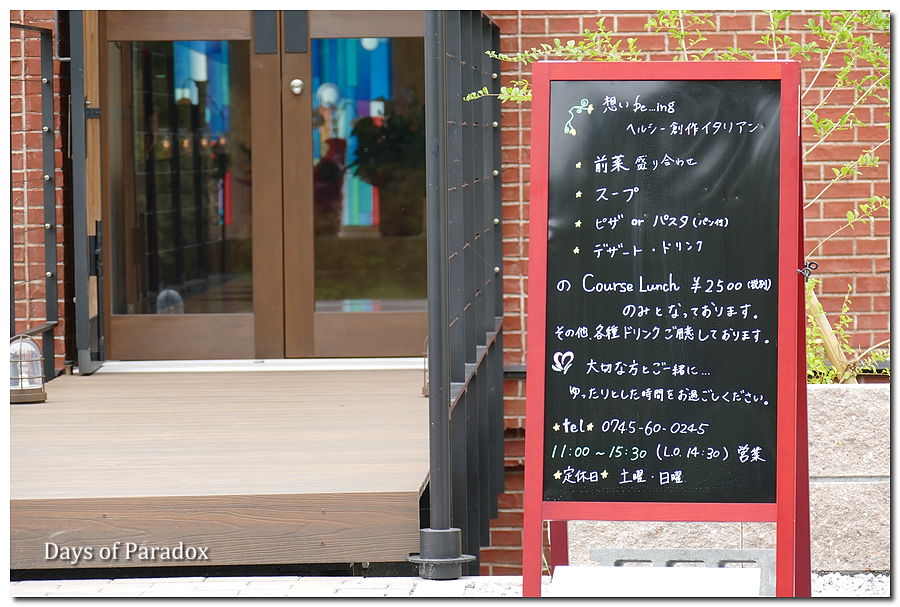 想い be...ing
ヘルシー創作イタリアン
* 前菜盛り合わせ
* スープ
* ピザ or パスタ(パン付)
* デザート・ドリンク
の Course Lunch ¥2500(税別)
のみとなっております。
その他、各種ドリンクご用意しております。
大切な方とご一緒に...
ゆったりとした時間をお過ごしください。
*tel* 0745-60-0245
11:00~15:30(L.O.14:30)営業
*定休日* 土曜・日曜
Days of Paradox